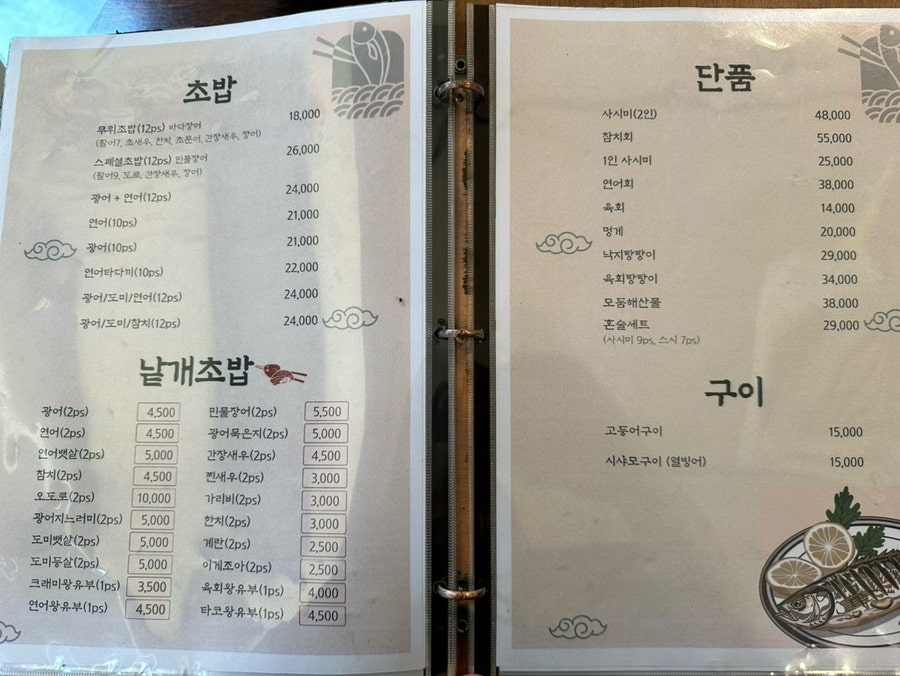 초밥
무위초밥(12ps) 바다장어 18,000
(활어7, 초새우, 한치, 초문어, 간장새우, 장어)
스페셜초밥(12ps) 민물장어 26,000
(활어9, 도로, 간장새우, 장어)
광어 + 연어(12ps) 24,000
연어(10ps) 21,000
광어(10ps) 21,000
연어타다끼(10ps) 22,000
광어/도미/연어(12ps) 24,000
광어/도미/참치(12ps) 24,000
낱개초밥
광어(2ps) 4,500
연어(2ps) 4,500
연어뱃살(2ps) 5,000
참치(2ps) 4,500
오도로(2ps) 10,000
광어지느러미(2ps) 5,000
도미뱃살(2ps) 5,000
도미등살(2ps) 5,000
크래미왕유부(1ps) 3,500
연어왕유부(1ps) 4,500
민물장어(2ps) 5,500
광어묵은지(2ps) 5,000
간장새우(2ps) 4,500
찐새우(2ps) 3,000
가리비(2ps) 3,000
한치(2ps) 3,000
계란(2ps) 2,500
이게조아(2ps) 2,500
육회왕유부(1ps) 4,000
타코왕유부(1ps) 4,500
단품
사시미(2인) 48,000
참치회 55,000
1인 사시미 25,000
연어회 38,000
육회 14,000
멍게 20,000
낙지탕탕이 29,000
육회탕탕이 34,000
모둠해산물 38,000
혼술세트 29,000
(사시미 9ps, 스시 7ps)
구이
고등어구이 15,000
시샤모구이 (열빙어) 15,000